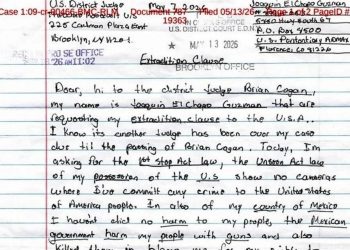 Case 1:09-cr-00466-BMC-RLM Document 787 Filed 05/13/26 Page 1 of 2 PageID #
19363
U.S. District Judge
May 7, 2026
Joaquin El Chapo Guzman
U.S. DISTRICT COURT E.D.N.Y.
225 Cadman Plaza East
Brooklyn,
MAY 13 2026
P.O. Box 8500
SE OFFICE
BROOKLYN OFFICE
Florence, CO 81226
Extradition Clause
Dear, hi to the district Judge Brian Cogan,
my name is Joaquin El Chapo Guzman that are
requesting my extradition clause to the U.S.A..
I know its another Judge has been over my case
due til the passing of Brian Cogan. Today, I'm
asking for the 1st Stop Act law, the Unseen Act law
of my possession of the U.S show no cameras
where I've committ any crime to the United States
of America people. In also of my country of Mexico
I havent did no harm to my people, the Mexican
government harm my people with guns and also